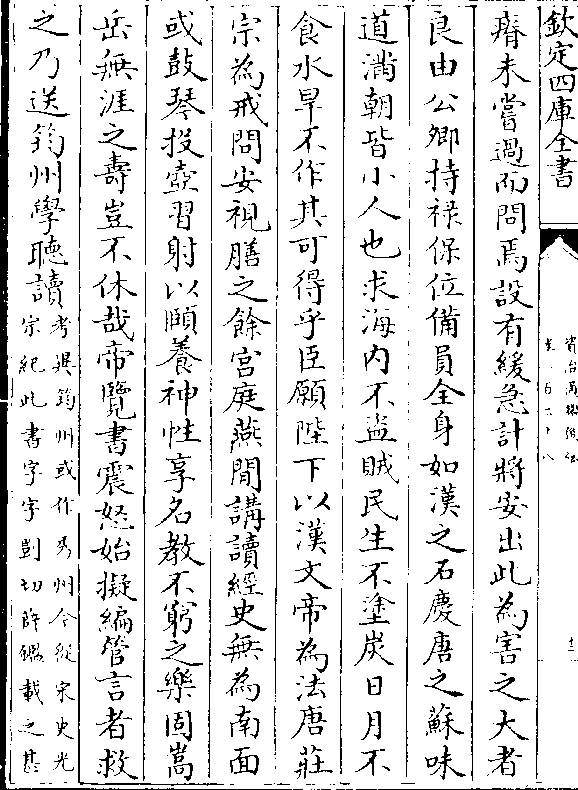 欽定四庫全書
瘠未嘗過而問焉設有緩急計將安出此為害之大者
良由公卿持祿保位備員全身如漢之石慶唐之蘇味
道滿朝皆小人也求海內不盜賊民生不塗炭日月不
食水旱不作其可得乎臣願陛下以漢文帝為法唐莊
宗為戒問安視膳之餘宮庭燕閒講讀經史無為南面
或鼓琴投壺習射以頤養神性享名教不窮之樂固嵩
岳無涯之壽豈不休哉帝覽書震怒始擬編管言者救
之乃送筠州學聽讀
考異筠州或作秀州今從宋史光
宗紀此書字字剴切
載之甚